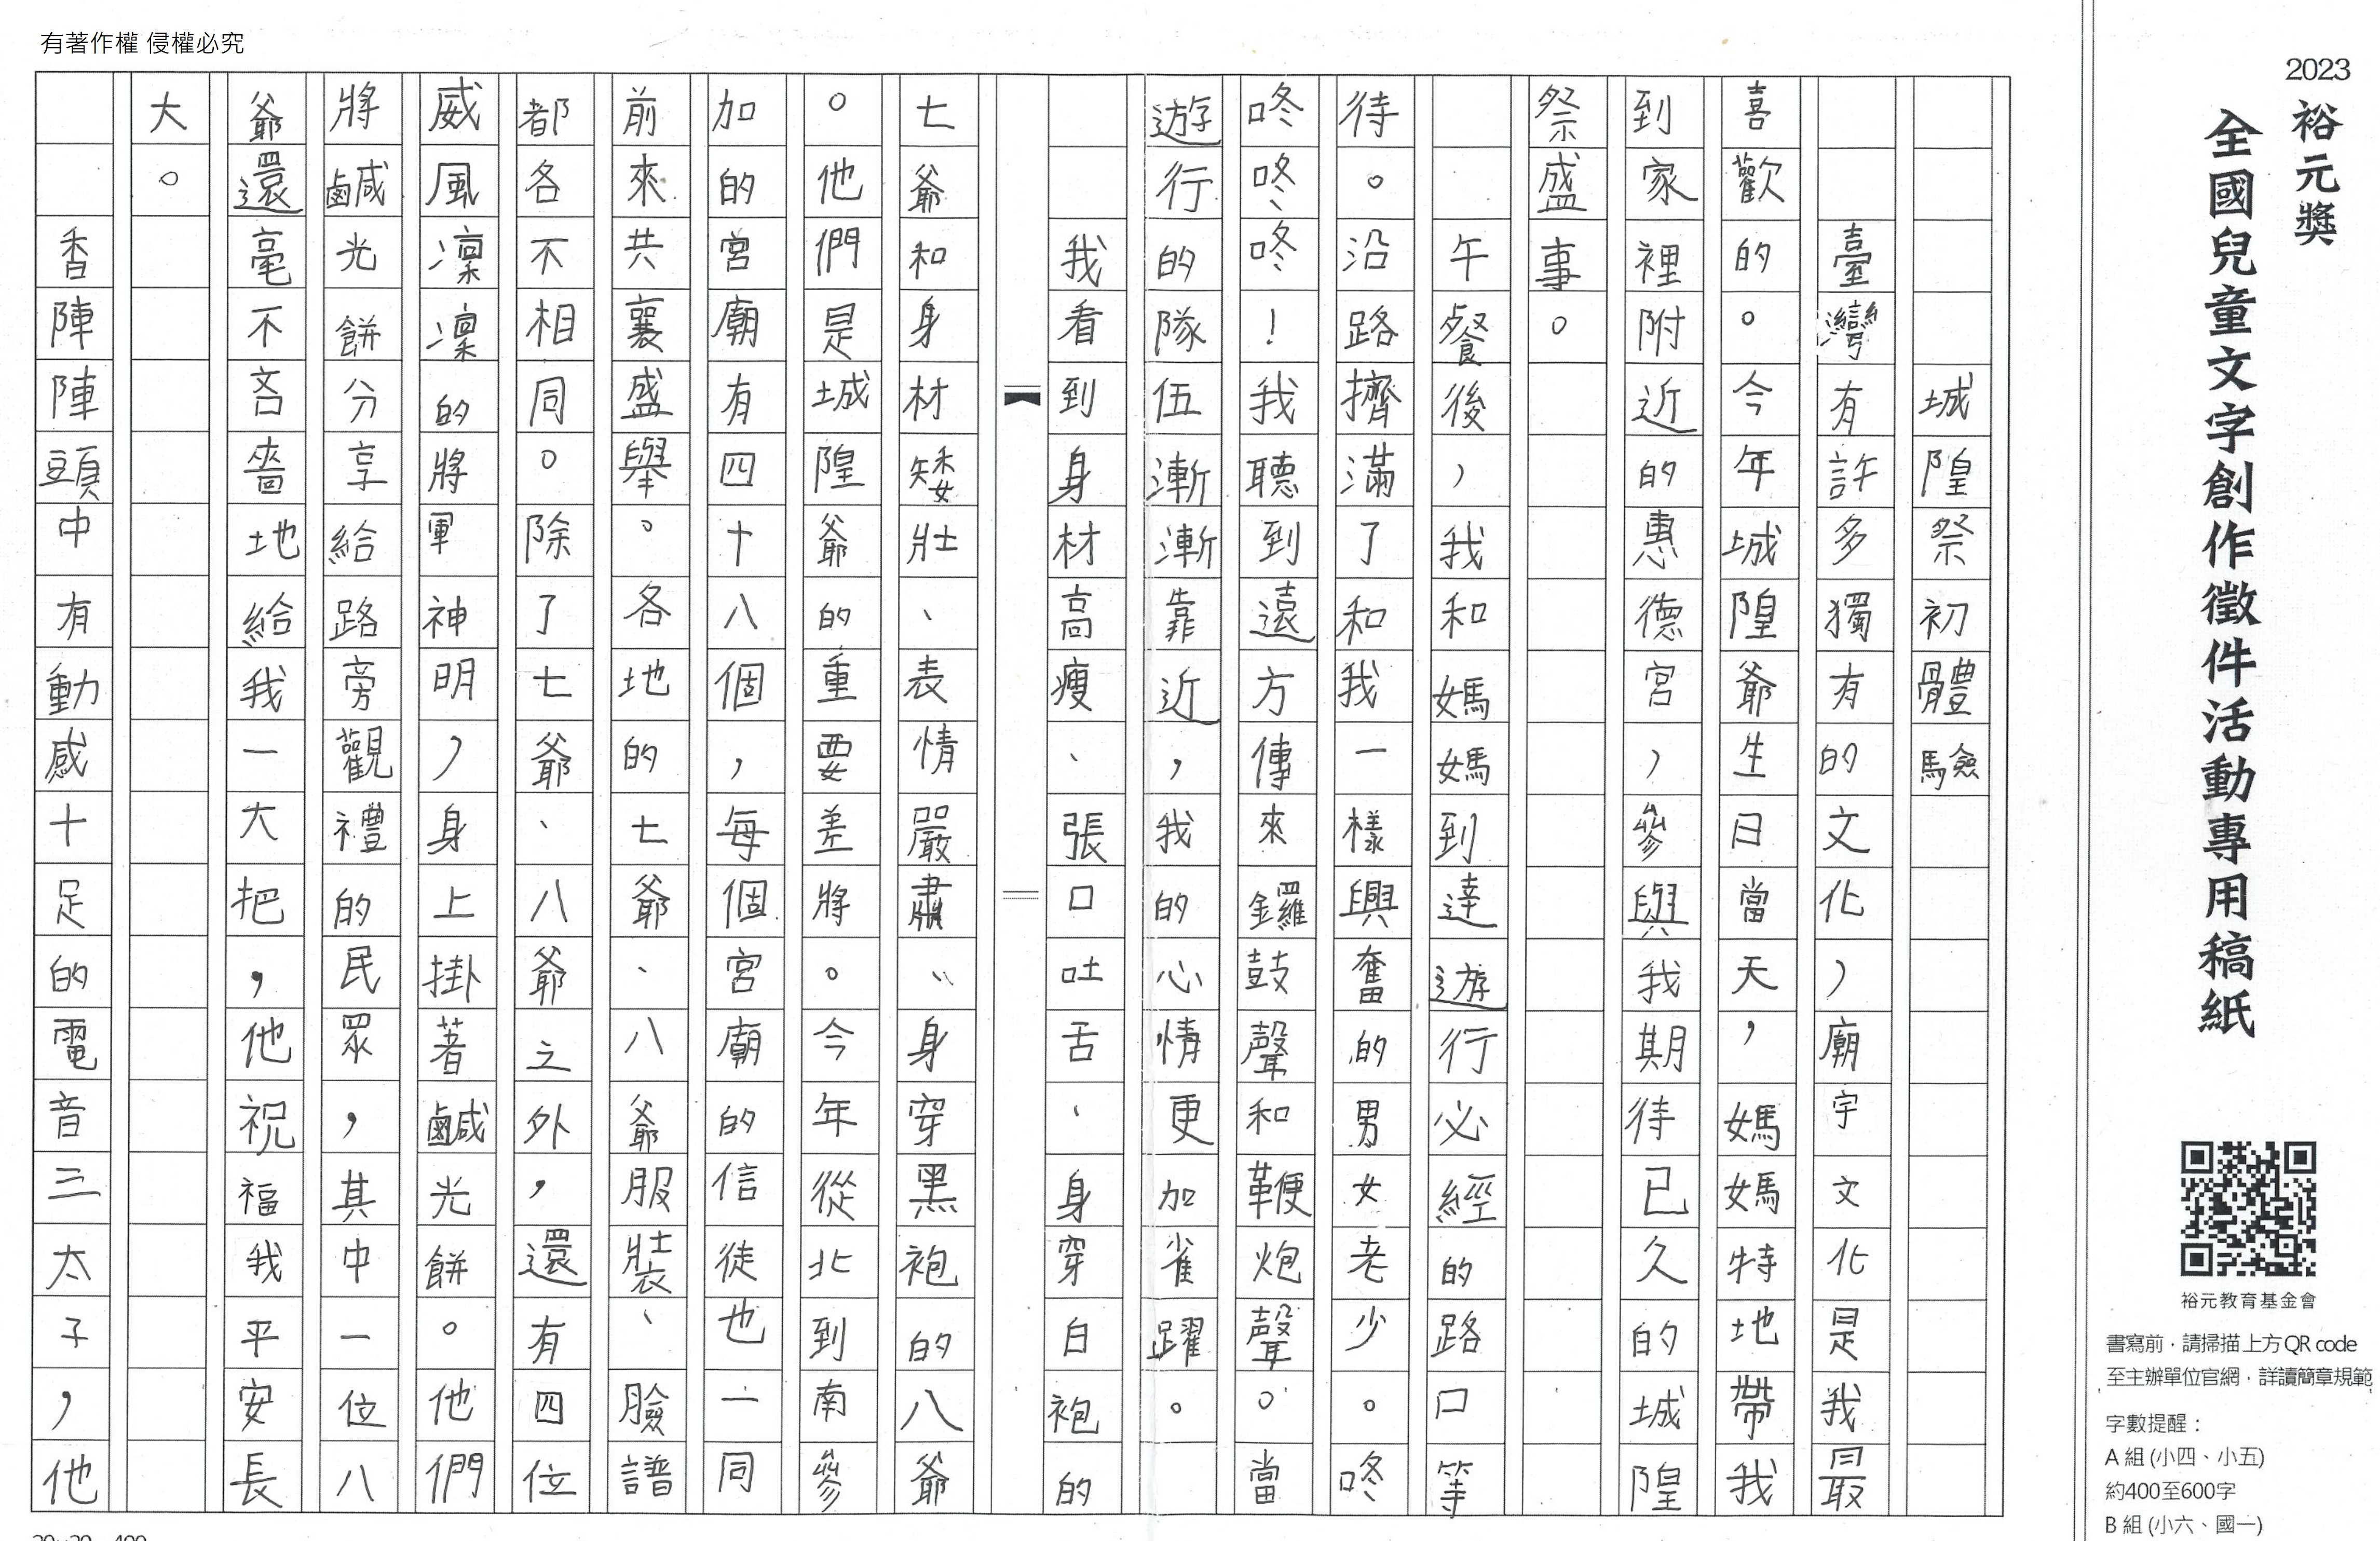 有著作權 侵權必究
2023
裕元獎
全國兒童文字創作徵件活動專用稿紙
裕元教育基金會
書寫前，請掃描上方QR code
至主辦單位官網，詳讀簡章規範
字數提醒：
A 組 (小四、小五)
約400至600字
B 組 (小六、國一)
城隍祭初體驗
臺灣有許多獨有的文化，廟宇文化是我最
喜歡的。今年城隍爺生日當天，媽媽特地帶我
到家裡附近的惠德宮，參與我期待已久的城隍
祭盛事。
午餐後，我和媽媽到達遊行必經的路口等
待。沿路擠滿了和我一樣興奮的男女老少。咚
咚咚咚！我聽到遠方傳來鑼鼓聲和鞭炮聲。當
遊行的隊伍漸漸靠近，我的心情更加雀躍。
我看到身材高瘦、張口吐舌、身穿白袍的
七爺和身材矮壯、表情嚴肅、身穿黑袍的八爺
。他們是城隍爺的重要差將。今年從北到南參
加的宮廟有四十八個，每個宮廟的信徒也一同
前來共襄盛舉。各地的七爺、八爺服裝、臉譜
都各不相同。除了七爺、八爺之外，還有四位
威風凜凜的將軍神明，身上掛著鹹光餅。他們
將鹹光餅分享給路旁觀禮的民眾，其中一位八
爺還毫不吝嗇地給我一大把，他祝福我平安長
大。
香陣陣頭中有動感十足的電音三太子，他